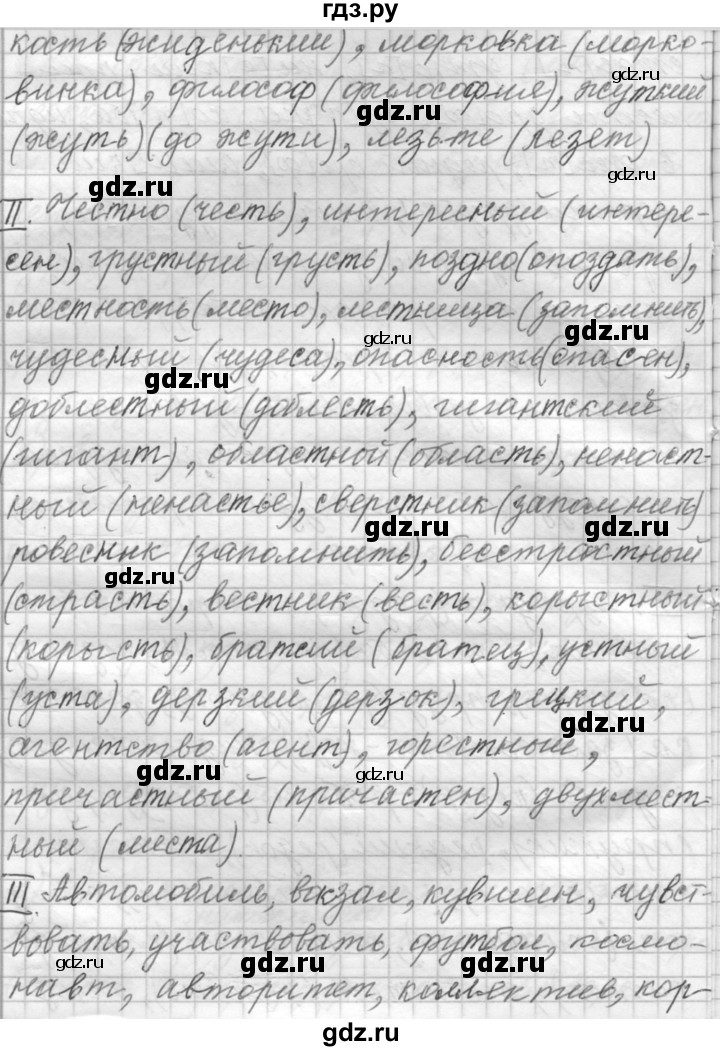 гдз.ру
кость (жиденький), морковка (морко-
gdz.ru
винка), философ (философия), жуткий
gdz.ru
(жуть) (до жути), лезьте (лезет)
gdz.ru
gdz.ru
II. Честно (честь), интересный (интере-
сен), грустный (грусть), поздно (опоздать),
местность (место), лестница (запомнить),
gdz.ru
gdz.ru
чудесный (чудеса), опасность (опасен),
gdz.ru
доблестный (доблесть), гигантский
(гигант), областной (область), ненаст-
ный (ненастье), сверстник (запомнить)
gdz.ru gdz.ru
ровесник (запомнить), бесстрастный
gdz.ru
(страсть), вестник (весть), корыстный
(корысть), братский (братец), устный
(уста), дерзкий (дерзок), грецкий,
gdz.ru
агентство (агент), горестный,
gdz.ru gdz.ru
причастный (причастен), двухмест-
ный (места).
III. Автомобиль, вокзал, кувшин, чувст-
вовать, участвовать, футбол, космо-
gdz.ru gdz.ru gdz.ru
навт, авторитет, коллектив, кор-
gdz.ru